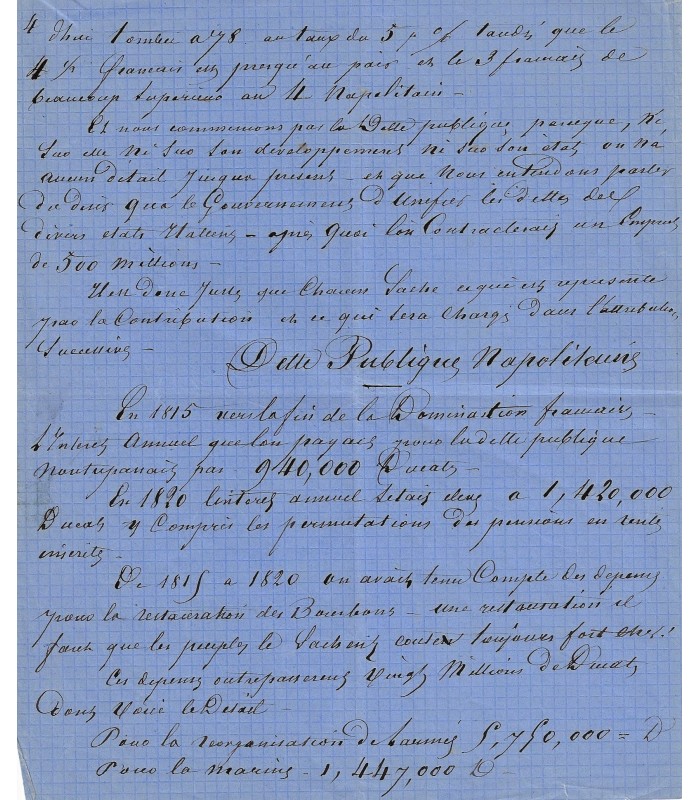 4
d'hui tombée a 78. au taux du 5 p % tandis que le
4 ½ français est presqu'au pair et le 3 français de
beaucoup Superieur au 4 Napolitain –
Et nous commencons par la Dette publique, parceque, Ni
Sur elle ni Sur Son développement ni Sur Son état, on n'a
aucun détail jusqu'a present – et que Nous entendons parler
du desir qu'a le Gouvernement d'Unifier les dettes des
divers etats Italiens – après quoi l'on Contracterait un Emprunt
de 500 millions –
Il est donc Juste que Chacun Sache ce qui est represente
par la Contribution et ce qui sera Chargé dans l'attribution
Successive –
Dette Publique Napolitaine
En 1815 vers la fin de la Domination française –
L'Interet Annuel que l'on payait pour la dette publique
n'outrepassait pas 940,000 Ducats –
En 1820 l'interet annuel S'etait eleve a 1,420,000
Ducats y Compris les permutations des pensions en rente
inscrite –
De 1815 a 1820 on avait tenu Compte des depenses
pour la restauration des Bourbons – une restauration il
faut que les peuples le Sachent coute toujours fort cher!
Ces depenses outrepasserent Vingt Millions de Ducats
Dont Voici le Detail –
Pour la reorganisation de l'armée 5,750,000 = D
Pour la marine – 1,447,000 D –